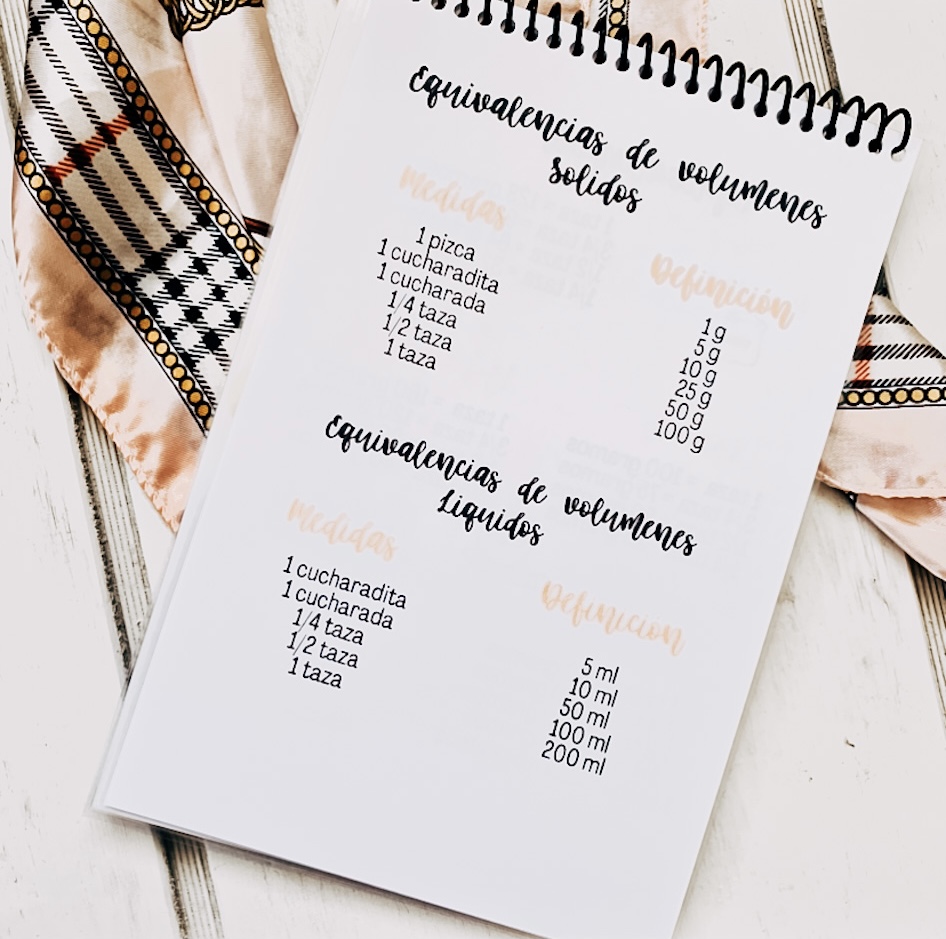 Equivalencias de volumenes
Solidos
Medidas
1 pizca
1 cucharadita
1 cucharada
1/4 taza
1/2 taza
1 taza
Definición
1 g
5 g
10 g
25 g
50 g
100 g
Equivalencias de volumenes
Liquidos
Medidas
1 cucharadita
1 cucharada
1/4 taza
1/2 taza
1 taza
Definicion
5 ml
10 ml
50 ml
100 ml
200 ml